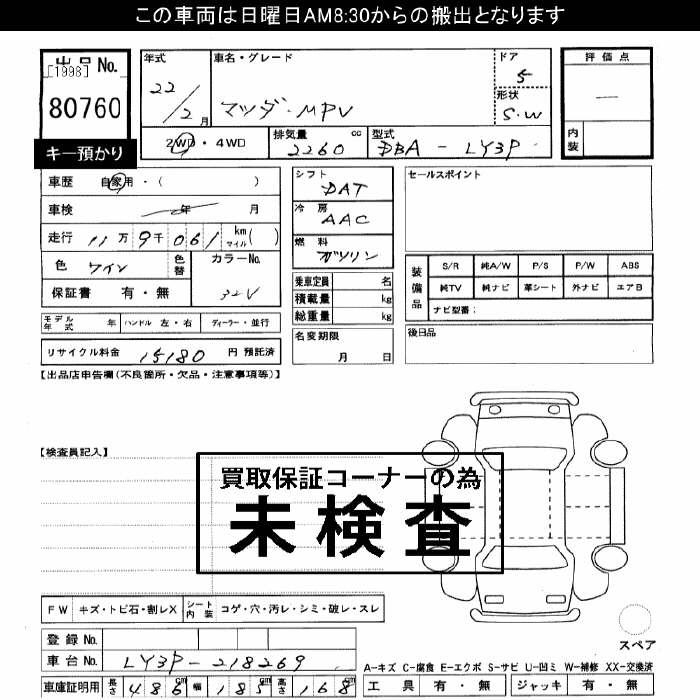 この車両は日曜日AM8:30からの搬出となります
出品No.
[1998]
80760
キー預かり
年式
22/2月
車名・グレード
マツダ・MPV
ドア
5
形状
S.W
評価点
—
内装
2WD・4WD
排気量 2260 cc
型式 DBA - LY3P
車歴 自家用・( )
車検 年 月
走行 11万9千061 km マイル( )
色 ワイン
色替
カラーNo.
32V
保証書 有・無
シフト
DAT
冷房
AAC
燃料
ガソリン
セールスポイント
乗車定員 名
積載量 kg
総重量 kg
装備品
S/R 純A/W P/S P/W ABS
純TV 純ナビ 革シート 外ナビ エアB
ナビ型番:
モデル年式 年 ハンドル 左・右 ディーラー・並行
名変期限
月 日
後日品
リサイクル料金 15180 円 預託済
【出品店申告欄(不良箇所・欠品・注意事項等)】
【検査員記入】
買取保証コーナーの為
未検査
FW キズ・トビ石・割レX シート内装 コゲ・穴・汚レ・シミ・破レ・スレ
スペア
登録No.
車台No. LY3P-218269
A-キズ C-腐食 E-エクボ S-サビ U-凹ミ W-補修 XX-交換済
車庫証明用 長さ 486 cm 幅 185 cm 高さ 168 cm
工具 有・無 ジャッキ 有・無